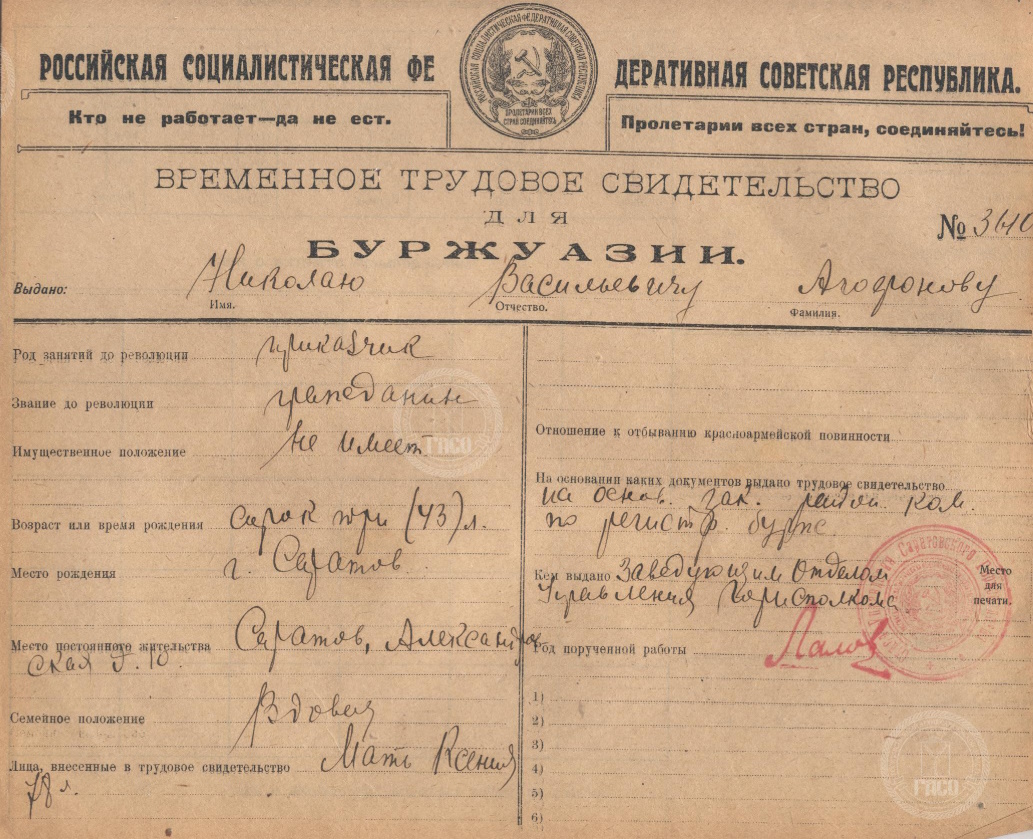 РОССИЙСКАЯ СОЦИАЛИСТИЧЕСКАЯ ФЕ ДЕРАТИВНАЯ СОВЕТСКАЯ РЕСПУБЛИКА.
РОССИЙСКАЯ СОЦИАЛИСТИЧЕСКАЯ ФЕДЕРАТИВНАЯ СОВЕТСКАЯ РЕСПУБЛИКА
ПРОЛЕТАРИИ ВСЕХ
СТРАН СОЕДИНЯЙТЕСЬ
Кто не работает—да не ест.
Пролетарии всех стран, соединяйтесь!
ВРЕМЕННОЕ ТРУДОВОЕ СВИДЕТЕЛЬСТВО
ДЛЯ
БУРЖУАЗИИ.
№ 3610
Выдано: Николаю Васильевичу Агафонову
Имя. Отчество. Фамилия.
Род занятий до революции приказчик
Звание до революции гражданин
Имущественное положение не имеет
Возраст или время рождения сорок три (43) л.
Место рождения г. Саратов
Место постоянного жительства Саратов, Александров
ская д. 10.
Семейное положение Вдовец
Лица, внесенные в трудовое свидетельство Мать Ксения
78 л.
Отношение к отбыванию красноармейской повинности
На основании каких документов выдано трудовое свидетельство
на основ. зак. район. ком.
по регистр. бурж.
Кем выдано Заведующим Отделом
Управления Горисполкома
Место
для
печати.
Саратовского
Род порученной работы
1)
2)
3)
4)
5)
6)
ГАСО
ГАСО